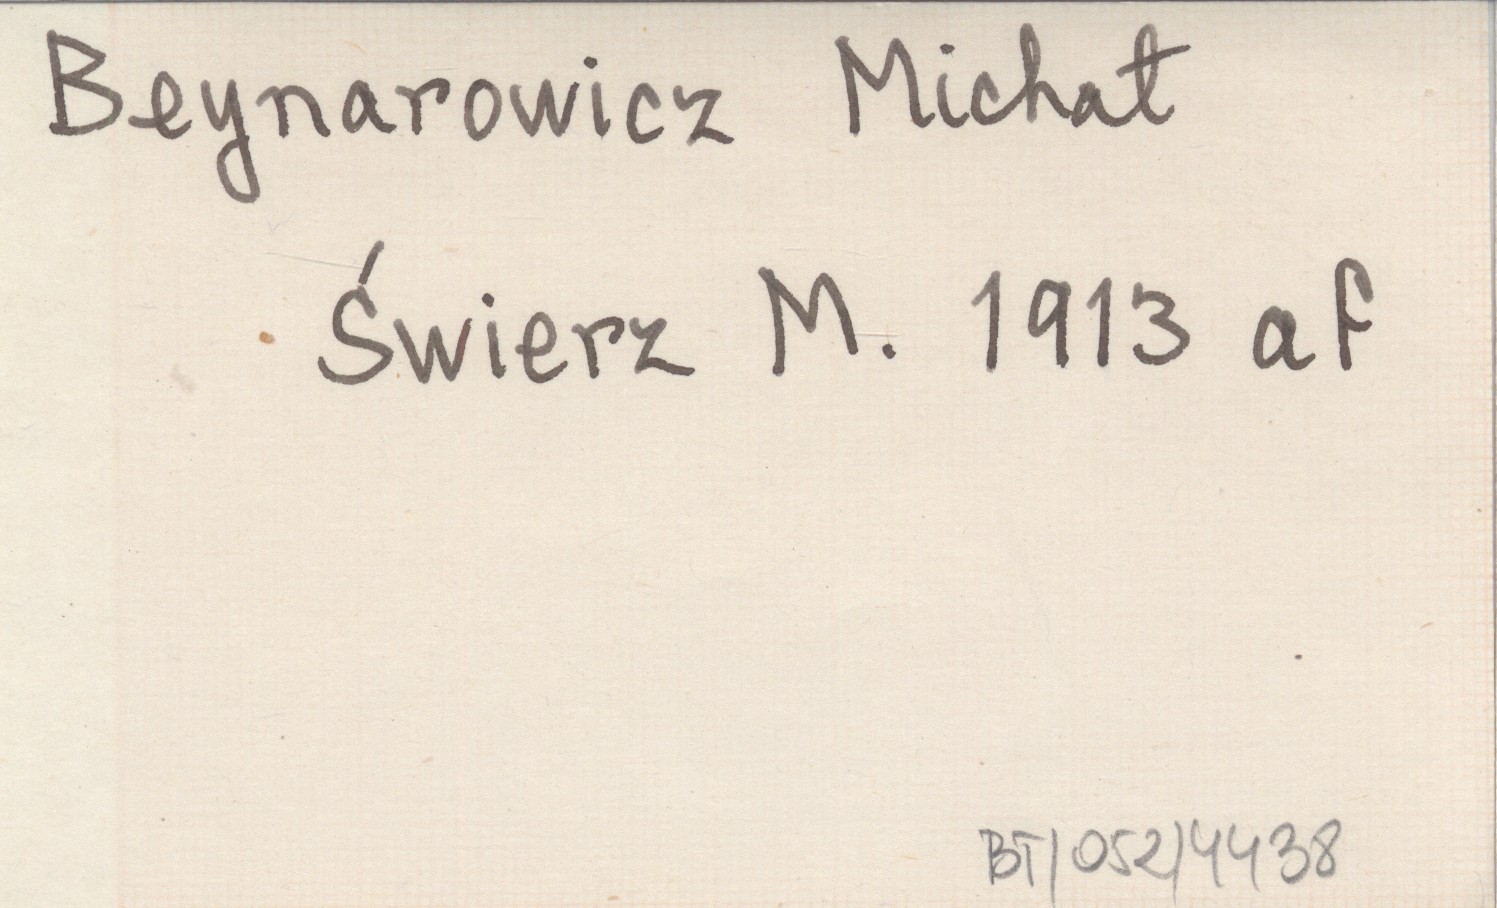 Beynarowicz Michał
Świerz M. 1913 af
BT/052/4438